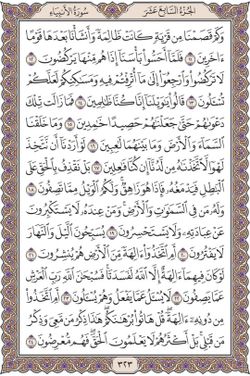 الجزء السابع عشر سورة الأنبياء
وَكَمْ قَصَمْنَا مِن قَرْيَةٍ كَانَتْ ظَالِمَةً وَأَنشَأْنَا بَعْدَهَا قَوْمًا
ءَاخَرِينَ ۝١١ فَلَمَّآ أَحَسُّوا۟ بَأْسَنَآ إِذَا هُم مِّنْهَا يَرْكُضُونَ ۝١٢
لَا تَرْكُضُوا۟ وَٱرْجِعُوٓا۟ إِلَىٰ مَآ أُتْرِفْتُمْ فِيهِ وَمَسَٰكِنِكُمْ لَعَلَّكُمْ
تُسْـَٔلُونَ ۝١٣ قَالُوا۟ يَٰوَيْلَنَآ إِنَّا كُنَّا ظَٰلِمِينَ ۝١٤ فَمَا زَالَت تِّلْكَ
دَعْوَىٰهُمْ حَتَّىٰ جَعَلْنَٰهُمْ حَصِيدًا خَٰمِدِينَ ۝١٥ وَمَا خَلَقْنَا
ٱلسَّمَآءَ وَٱلْأَرْضَ وَمَا بَيْنَهُمَا لَٰعِبِينَ ۝١٦ لَوْ أَرَدْنَآ أَن نَّتَّخِذَ
لَهْوًا لَّٱتَّخَذْنَٰهُ مِن لَّدُنَّآ إِن كُنَّا فَٰعِلِينَ ۝١٧ بَلْ نَقْذِفُ بِٱلْحَقِّ عَلَى
ٱلْبَٰطِلِ فَيَدْمَغُهُۥ فَإِذَا هُوَ زَاهِقٌ وَلَكُمُ ٱلْوَيْلُ مِمَّا تَصِفُونَ ۝١٨
وَلَهُۥ مَن فِى ٱلسَّمَٰوَٰتِ وَٱلْأَرْضِ وَمَنْ عِندَهُۥ لَا يَسْتَكْبِرُونَ
عَنْ عِبَادَتِهِۦ وَلَا يَسْتَحْسِرُونَ ۝١٩ يُسَبِّحُونَ ٱلَّيْلَ وَٱلنَّهَارَ
لَا يَفْتُرُونَ ۝٢٠ أَمِ ٱتَّخَذُوٓا۟ ءَالِهَةً مِّنَ ٱلْأَرْضِ هُمْ يُنشِرُونَ ۝٢١
لَوْ كَانَ فِيهِمَآ ءَالِهَةٌ إِلَّا ٱللَّهُ لَفَسَدَتَا فَسُبْحَٰنَ ٱللَّهِ رَبِّ ٱلْعَرْشِ
عَمَّا يَصِفُونَ ۝٢٢ لَا يُسْـَٔلُ عَمَّا يَفْعَلُ وَهُمْ يُسْـَٔلُونَ ۝٢٣ أَمِ ٱتَّخَذُوا۟
مِن دُونِهِۦٓ ءَالِهَةً قُلْ هَاتُوا۟ بُرْهَٰنَكُمْ هَٰذَا ذِكْرُ مَن مَّعِىَ وَذِكْرُ
مَن قَبْلِى بَلْ أَكْثَرُهُمْ لَا يَعْلَمُونَ ٱلْحَقَّ فَهُم مُّعْرِضُونَ ۝٢٤
٣٢٣